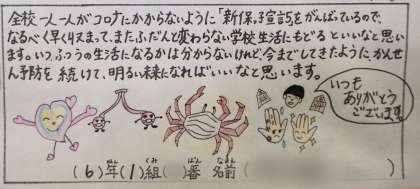 全校一人一人がコロナにかからないように「新保っ子宣言」をがんばっているので、
なるべく早く収まって、またふだんと変わらない学校生活にもどるといいなと思い
ます。いつ、ふつうの生活になるかは分からないけれど、今までしてきたように、かんせ
ん予防を続けて、明るい未来になればいいなと思います。
いつも
ありがとう
ございます。
(6)年(1)組( )番 名前( )
ねん くみ ばん なまえ